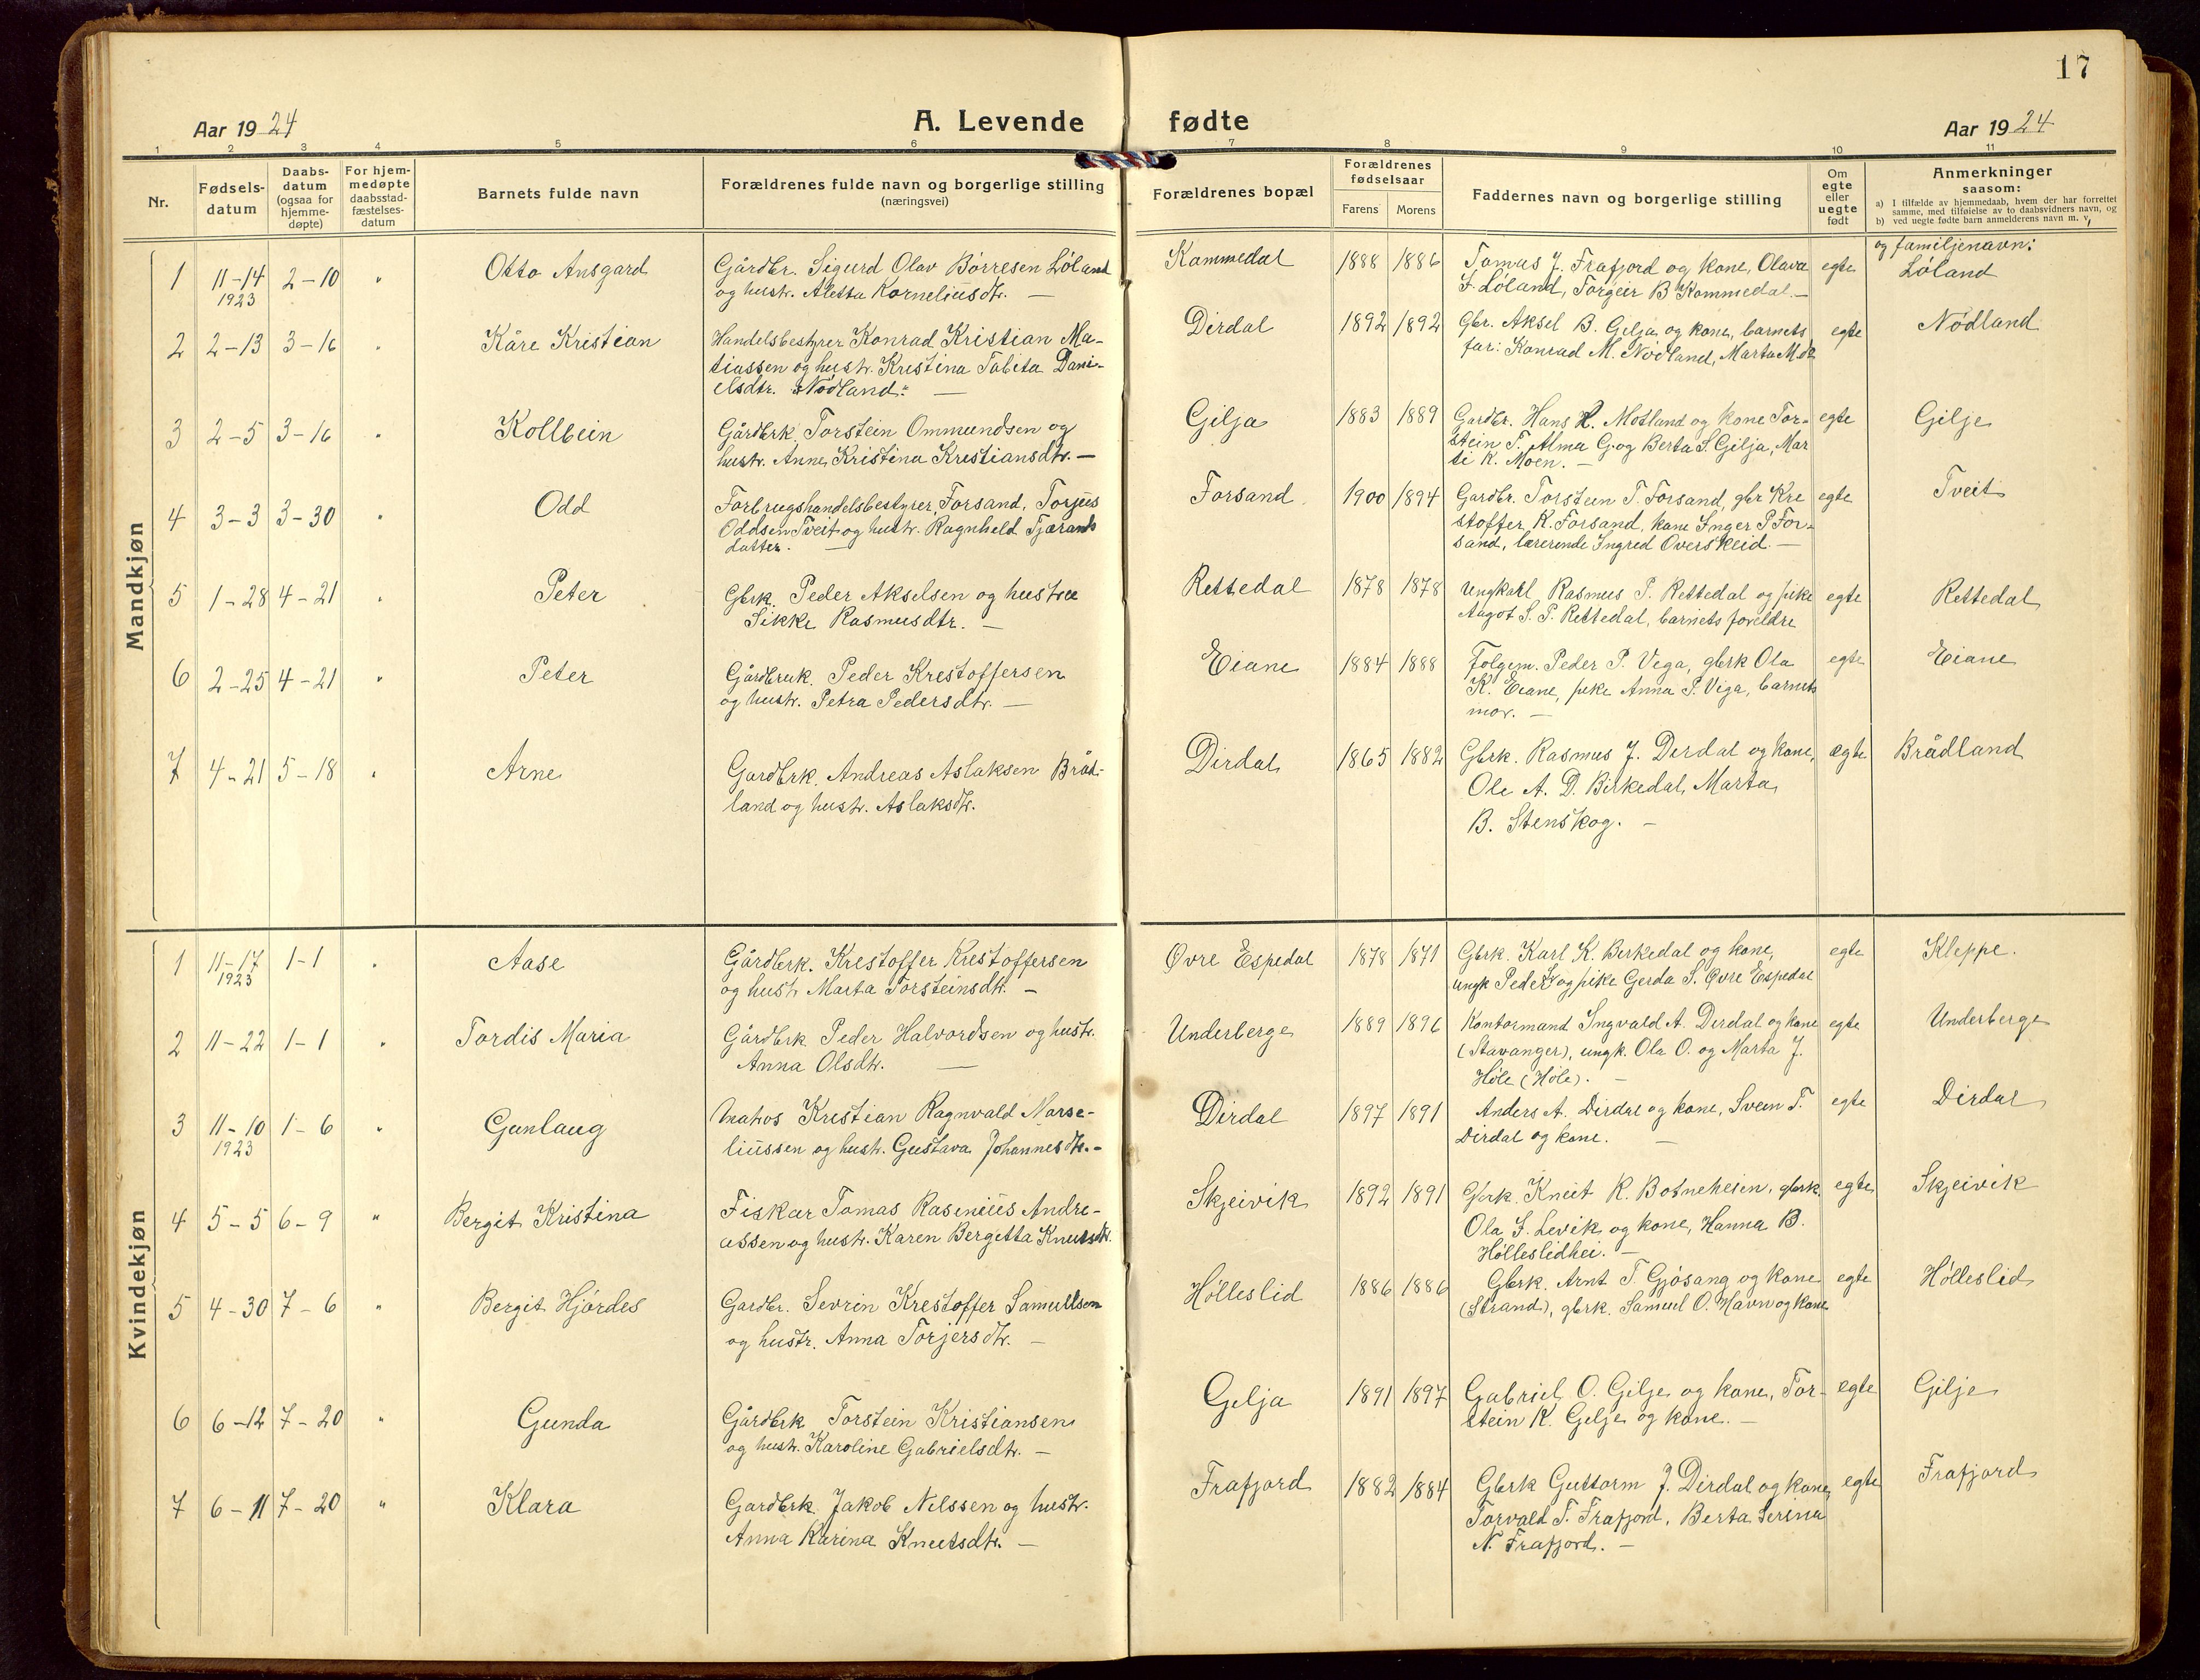 17
Aar 1924
A. Levende fødte
Aar 1924
1 2 3 4 5 6 7 8 9 10 11
Nr.
Fødsels-
datum
Daabs-
datum
(ogsaa for
hjemme-
døpte)
For hjem-
medøpte
daabsstad-
fæstelses-
datum
Barnets fulde navn
Forældrenes fulde navn og borgerlige stilling
(næringsvei)
Forældrenes bopæl
Forældrenes
fødselsaar
Farens Morens
Faddernes navn og borgerlige stilling
Om
egte
eller
uegte
født
Anmerkninger
saasom:
a) I tilfælde av hjemmedaab, hvem der har forrettet
samme, med tilføielse av to daabsvidners navn, og
b) ved uegte fødte barn anmelderens navn m. v.
og familjenavn:
Mandkjøn
1 11-14 2-10 " Otto Ansgard Gårdbr. Sigurd Olav Börresen Löland Kommedal 1888 1886 Tomas J. Frafjord og kone, Olava egte Löland
1923 og hustr. Aletta Korneliusdtr. — Löland, Torgeir B Kommedal. —
2 2-13 3-16 " Kåre Kristian Handelsbestyrer Konrad Kristian Ma- Dirdal 1892 1892 Gbr. Aksel B. Gilja og kone, barnets egte Nödland
tiassen og hustr. Kristina Tabita Dani- far: Konrad M. Nödland, Marta M. do
elsdtr. "Nödland". —
3 2-5 3-16 " Kolbein Gårdbrk. Torstein Ommundsen og Gilja 1883 1889 Gardbr. Hans R. Motland og kone Tor- egte Gilje
hustr. Anne Kristina Kristiansdtr. — stein T. Alma G. og Berta S. Gilja, Mar
ti K. Moen. —
4 3-3 3-30 " Odd Forbrugshandelsbestyrer, Forsand, Torjus Forsand 1900 1894 Gardbr. Torstein T. Forsand, gbr Kre egte Tveit
Oddsen Tveit og hustr. Ragnhild Tjærands stoffer R. Forsand, kone Inger P For-
datter. — sand, lærerinde Ingred Overskeid. —
5 1-28 4-21 " Peter Gbrk. Peder Akselsen og hustru Rettedal 1878 1878 Ungkarl Rasmus P. Rettedal og pike egte Rettedal
Sikke Rasmusdtr. — Aagot S. P. Rettedal, barnets foreldre
6 2-25 4-21 " Peter Gårdbruk. Peder Krestoffersen Eiane 1884 1888 Folgem. Peder P. Vega, gbrk Ola egte Eiane
og hustr. Petra Pedersdtr. — K. Eiane, pike Anna P. Viga, barnets
mor. —
7 4-21 5-18 " Arne Gardbrk. Andreas Aslaksen Bråd- Dirdal 1865 1882 Gbrk. Rasmus J. Dirdal og kone, ægte Brådland
land og hustr. Aslaksdtr. Ole A. D. Birkedal, Marta
B. Stenskog. —
Kvindekjøn
1 11-17 1-1 " Aase Gårdbrk. Krestoffer Krestoffersen Øvre Espedal 1878 1871 Gbrk. Karl K. Berkedal og kone, egte Kleppe.
1923 og hustr Marta Torsteinsdtr. — ungk Peder og pike Gerda S. Øvre Espedal
2 11-22 1-1 " Tordis Maria Gårdbrk Peder Halvordsen og hustr. Underberge 1889 1896 Kontormand Ingvald A. Dirdal og kone egte Underberge
Anna Olsdtr. — (Stavanger), ungk. Ola O. og Marta J.
Höle (Höle). —
3 11-10 1-6 " Gunlaug Matros Kristian Ragnvald Narse- Dirdal 1897 1891 Anders A. Dirdal og kone, Svein T. egte Dirdal
1923 liussen og hustr. Gustava Johannesdtr. — Dirdal og kone. —
4 5-5 6-9 " Bergit Kristina Fiskar Tomas Rasinius Andre- Skjeivik 1892 1891 Gbrk. Knut R. Botnehein, gbrk. egte Skjeivik
assen og hustr. Karen Bergitta Knutsdtr. Ola Levik og kone, Hanna B.
Hölleslidhei. —
5 4-30 7-6 " Bergit Hjördes Gardbr. Sevrin Krestoffer Samuelsen Hölleslid 1886 1886 Gbrk. Arnt T. Gjösang og kone egte Hölleslid
og hustr. Anna Torjersdtr. — (Strand), gbrk. Samuel O. Havn og kone
6 6-12 7-20 " Gunda Gårdbrk Torstein Kristiansen Gelja 1891 1897 Gabriel O. Gilje og kone, Tor- egte Gilje
og hustr. Karoline Gabrielsdtr. — stein K. Gelje og kone. —
7 6-11 7-20 " Klara Gardbrk. Jakob Nilssen og hustr. Frafjord 1882 1884 Gbrk Guttorm J. Dirdal og kone, egte Frafjord
Anna Karina Knutsdtr. — Torvald T. Frafjord, Berta Serina
N. Frafjord. —